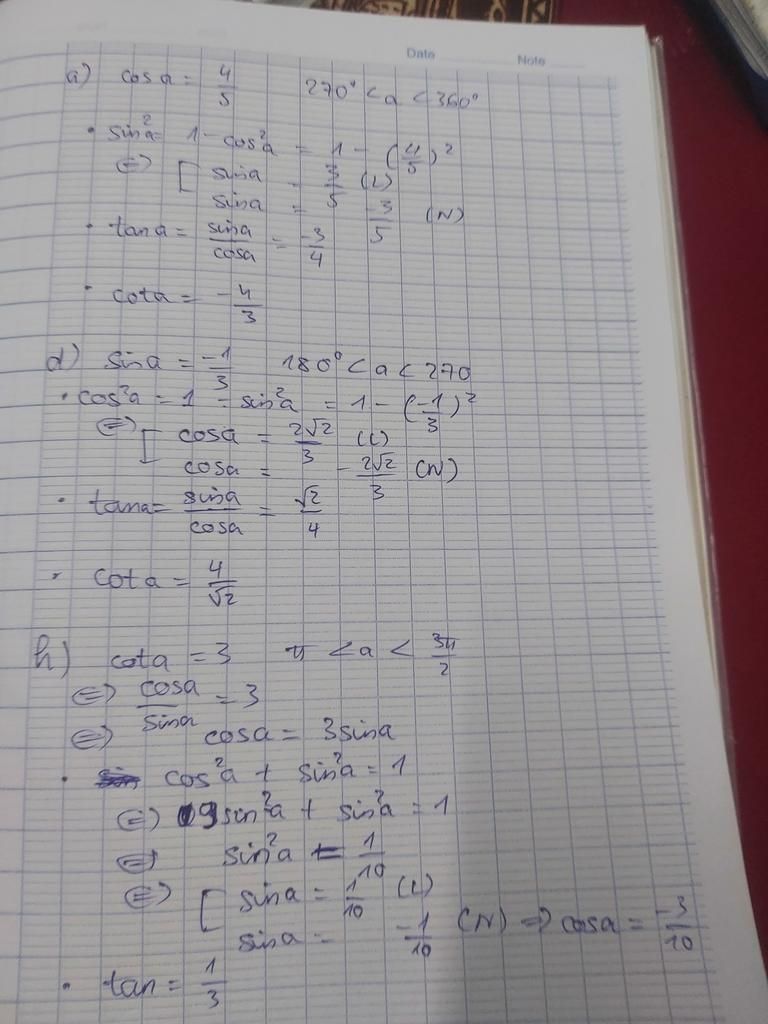 Date Note
a) cosa = 4/5 270° < a < 360°
• sin²a = 1 - cos²a = 1 - (4/5)²
⇔ [ sina = 3/5 (L)
sina = -3/5 (N)
• tana = sina/cosa = -3/4
• cota = -4/3
d) sina = -1/3 180° < a < 270
• cos²a = 1 - sin²a = 1 - (-1/3)²
⇔ [ cosa = 2√2/3 (L)
cosa = -2√2/3 (N)
• tana = sina/cosa = √2/4
• cota = 4/√2
h) cota = 3 π < a < 3π/2
⇔ cosa/sina = 3
⇔ cosa = 3sina
• cos²a + sin²a = 1
⇔ 9sin²a + sin²a = 1
⇔ sin²a = 1/10
⇔ [ sina = 1/10 (L)
sina = -1/10 (N) ⇒ cosa = -3/10
• tan = 1/3